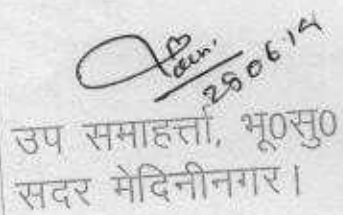 280614
उप समाहर्त्ता, भू0सु0
सदर मेदिनीनगर।